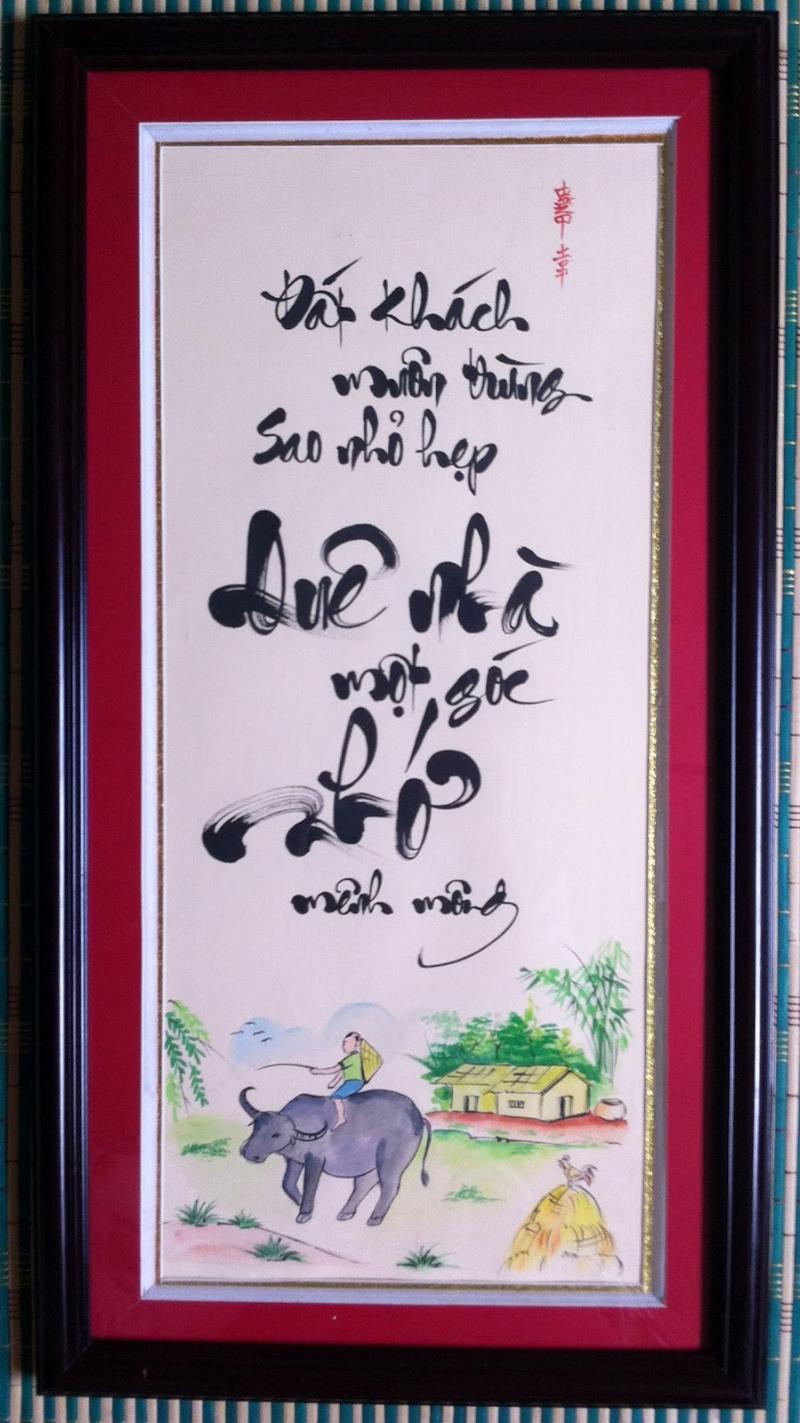 Đất khách
muôn trùng
Sao nhỏ hẹp
Quê nhà
một góc
nhớ
mênh mông